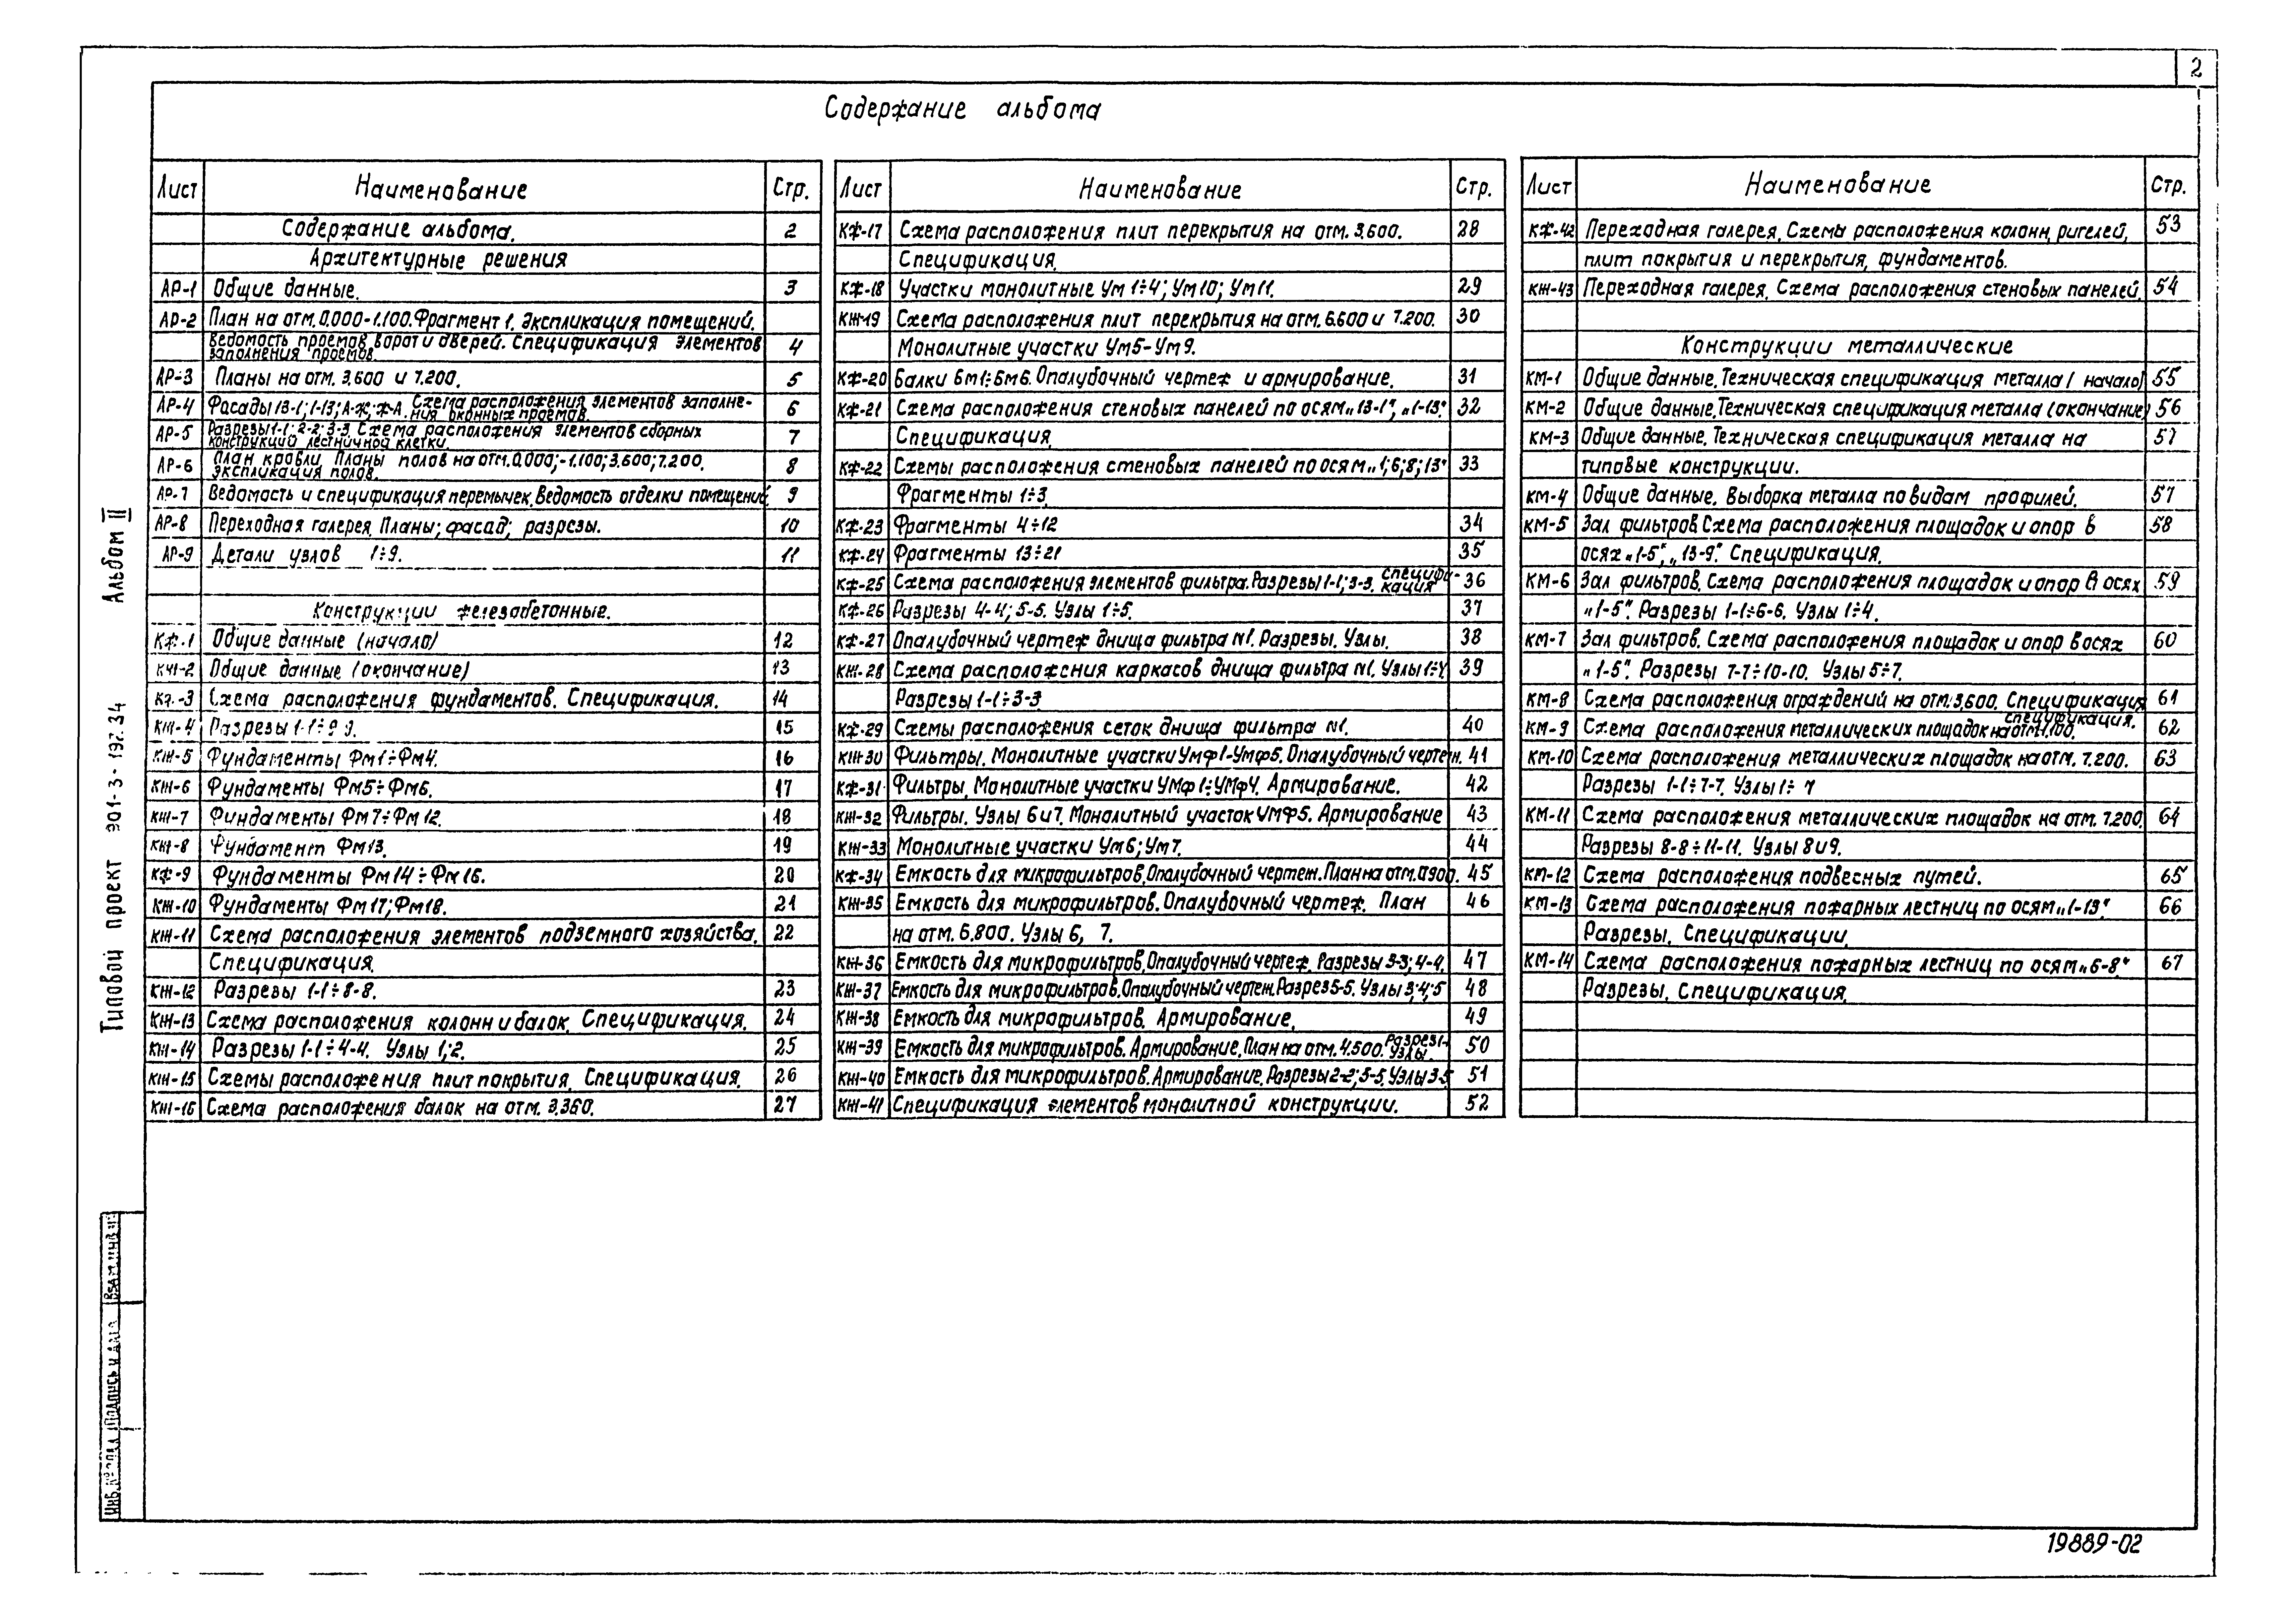 2
Содержание альбома
Лист Наименование Стр.
Содержание альбома. 2
Архитектурные решения
АР-1 Общие данные. 3
АР-2 План на отм. 0,000-1.100. Фрагмент 1. Экспликация помещений.
Ведомость проемов ворот и дверей. Спецификация элементов 4
заполнения проемов.
АР-3 Планы на отм. 3,600 и 7.200. 5
АР-4 Фасады 13-1; 1-13; А-Ж; Ж-А. Схема расположения элементов заполне- 6
ния оконных проемов.
АР-5 Разрезы 1-1; 2-2; 3-3. Схема расположения элементов сборных 7
конструкций лестничной клетки.
АР-6 План кровли. Планы полов на отм. 0,000; -1.100; 3,600; 7.200. 8
Экспликация полов.
АР-7 Ведомость и спецификация перемычек. Ведомость отделки помещений 9
АР-8 Переходная галерея. Планы; фасад; разрезы. 10
АР-9 Детали узлов 1÷9. 11
Конструкции железобетонные.
КЖ-1 Общие данные (начало) 12
КЖ-2 Общие данные (окончание) 13
КЖ-3 Схема расположения фундаментов. Спецификация. 14
КЖ-4 Разрезы 1-1÷9-9. 15
КЖ-5 Фундаменты Фм1÷Фм4. 16
КЖ-6 Фундаменты Фм5÷Фм6. 17
КЖ-7 Фундаменты Фм7÷Фм12. 18
КЖ-8 Фундамент Фм13. 19
КЖ-9 Фундаменты Фм14÷Фм16. 20
КЖ-10 Фундаменты Фм17; Фм18. 21
КЖ-11 Схема расположения элементов подземного хозяйства. 22
Спецификация.
КЖ-12 Разрезы 1-1÷8-8. 23
КЖ-13 Схема расположения колонн и балок. Спецификация. 24
КЖ-14 Разрезы 1-1÷4-4. Узлы 1; 2. 25
КЖ-15 Схемы расположения плит покрытия. Спецификация. 26
КЖ-16 Схема расположения балок на отм. 3,360. 27
Лист Наименование Стр.
КЖ-17 Схема расположения плит перекрытия на отм. 3,600. 28
Спецификация.
КЖ-18 Участки монолитные Ум1÷4; Ум10; Ум11. 29
КЖ-19 Схема расположения плит перекрытия на отм. 6.600 и 7.200. 30
Монолитные участки Ум5-Ум9.
КЖ-20 Балки Бм1÷Бм6. Опалубочный чертеж и армирование. 31
КЖ-21 Схема расположения стеновых панелей по осям „13-1”, „1-13”. 32
Спецификация
КЖ-22 Схемы расположения стеновых панелей по осям „1; 6; 8; 13” 33
Фрагменты 1÷3
КЖ-23 Фрагменты 4÷12 34
КЖ-24 Фрагменты 13÷21 35
КЖ-25 Схема расположения элементов фильтра. Разрезы 1-1; 3-3. Специфи- 36
кация
КЖ-26 Разрезы 4-4; 5-5. Узлы 1÷5. 37
КЖ-27 Опалубочный чертеж днища фильтра №1. Разрезы. Узлы. 38
КЖ-28 Схема расположения каркасов днища фильтра №1. Узлы 1÷4 39
Разрезы 1-1÷3-3
КЖ-29 Схемы расположения сеток днища фильтра №1. 40
КЖ-30 Фильтры. Монолитные участки Умф1-Умф5. Опалубочный чертеж. 41
КЖ-31 Фильтры. Монолитные участки УМф1÷УМф4. Армирование. 42
КЖ-32 Фильтры. Узлы 6 и 7. Монолитный участок УМф5. Армирование 43
КЖ-33 Монолитные участки Ум6; Ум7. 44
КЖ-34 Емкость для микрофильтров. Опалубочный чертеж. План на отм. 0,900. 45
КЖ-35 Емкость для микрофильтров. Опалубочный чертеж. План 46
на отм. 6.800. Узлы 6, 7.
КЖ-36 Емкость для микрофильтров. Опалубочный чертеж. Разрезы 3-3; 4-4. 47
КЖ-37 Емкость для микрофильтров. Опалубочный чертеж. Разрез 5-5. Узлы 3; 4; 5 48
КЖ-38 Емкость для микрофильтров. Армирование. 49
КЖ-39 Емкость для микрофильтров. Армирование. План на отм. 4.500. Разрез 1-1 50
Узлы.
КЖ-40 Емкость для микрофильтров. Армирование. Разрезы 2-2; 5-5. Узлы 3-5 51
КЖ-41 Спецификация элементов монолитной конструкции. 52
Лист Наименование Стр.
КЖ-42 Переходная галерея. Схемы расположения колонн, ригелей, 53
плит покрытия и перекрытия, фундаментов.
КЖ-43 Переходная галерея. Схема расположения стеновых панелей. 54
Конструкции металлические
КМ-1 Общие данные. Техническая спецификация металла (начало) 55
КМ-2 Общие данные. Техническая спецификация металла (окончание) 56
КМ-3 Общие данные. Техническая спецификация металла на 57
типовые конструкции.
КМ-4 Общие данные. Выборка металла по видам профилей. 57
КМ-5 Зал фильтров. Схема расположения площадок и опор в 58
осях „1-5”, „13-9”. Спецификация.
КМ-6 Зал фильтров. Схема расположения площадок и опор в осях 59
„1-5”. Разрезы 1-1÷6-6. Узлы 1÷4.
КМ-7 Зал фильтров. Схема расположения площадок и опор в осях 60
„1-5”. Разрезы 7-7÷10-10. Узлы 5÷7.
КМ-8 Схема расположения ограждений на отм. 3,600. Спецификация 61
КМ-9 Схема расположения металлических площадок на отм. 1,100. спецификация. 62
КМ-10 Схема расположения металлических площадок на отм. 7.200. 63
Разрезы 1-1÷7-7. Узлы 1÷7
КМ-11 Схема расположения металлических площадок на отм. 7.200. 64
Разрезы 8-8÷11-11. Узлы 8 и 9.
КМ-12 Схема расположения подвесных путей. 65
КМ-13 Схема расположения пожарных лестниц по осям „1-13” 66
Разрезы. Спецификации.
КМ-14 Схема расположения пожарных лестниц по осям „6-8” 67
Разрезы. Спецификация.
Типовой проект 901-3-192.34 Альбом II
Инв. № подл. Подпись и дата Взам. инв. №
19889-02